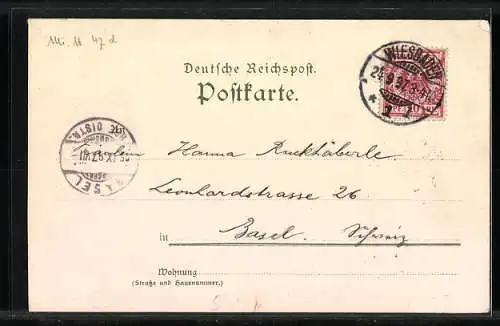 Mi. № 47 d
Deutsche Reichspost.
Postkarte.
WIESBADEN
24.9.97. 8-9
* 1 *
Fräulein Hanna Ruckhäberle
Leonhardstrasse 26
in Basel. Schweiz
Wohnung
(Straße und Hausnummer.)
BASEL
DISTR.